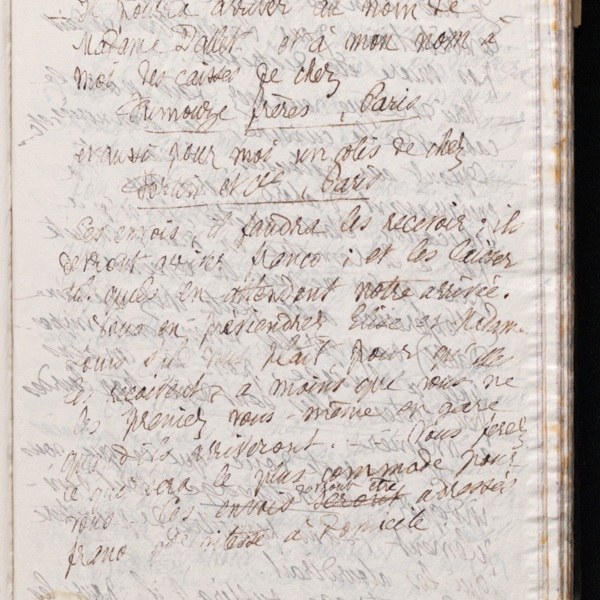 Il pourra arriver au nom de
Madame Dallet et à mon nom à
moi des caisses de chez
Fumouze frères, Paris
et aussi pour moi un colis de chez
et Cie, Paris
Ces envois, il faudra les recevoir ; ils
devront arriver franco ; et les laisser
tels quels en attendant notre arrivée.
Vous en préviendrez Elise et Madam
s'il vous plaît pour qu'elles
les reçoivent, à moins que vous ne
les preniez vous-même en gare
quand ils arriveront. — Vous ferez
ce qui sera le plus commode pour
vous. Ces envois devront être seront adressés
franco à Domicile